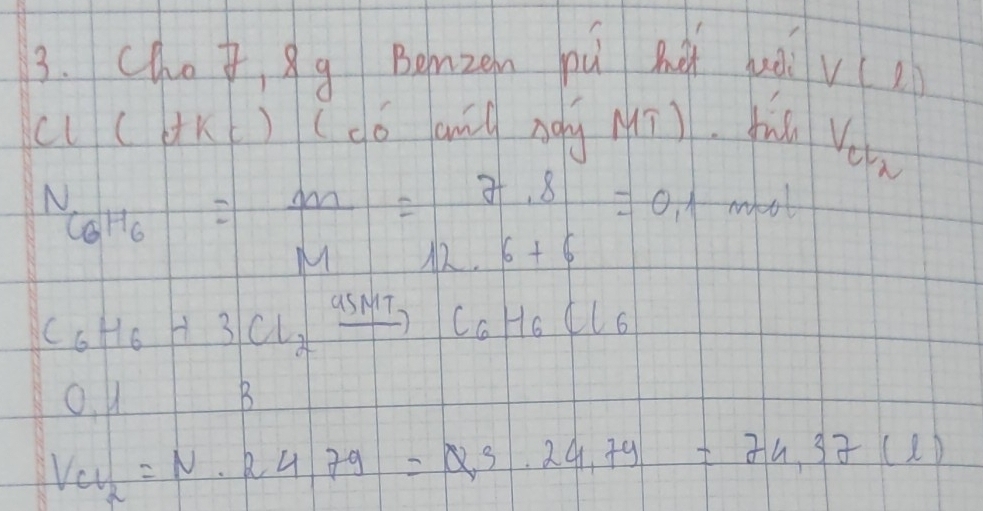 3. Cho 7,8g Benzen pứ hết với V(l)
Cl (đkc) (có ánh sáng MT). tính VCl₂
N C₆H₆ = m/M = 7,8/12.6+6 = 0,1 mol
C₆H₆ + 3Cl₂ asMT→ C₆H₆Cl₆
0,1 3
VCl₂ = N.24,79 = 0,3.24,79 = 74,37 (l)